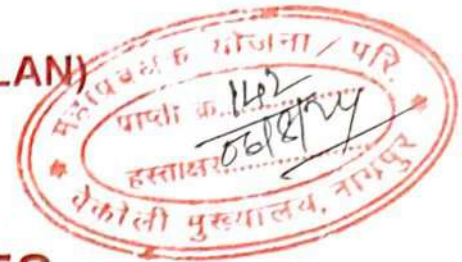 LAN)
महाप्रबंधक योजना / परि.
प्राप्ती क्र. 142
हस्ताक्षर
वेकोली मुख्यालय, नागपुर